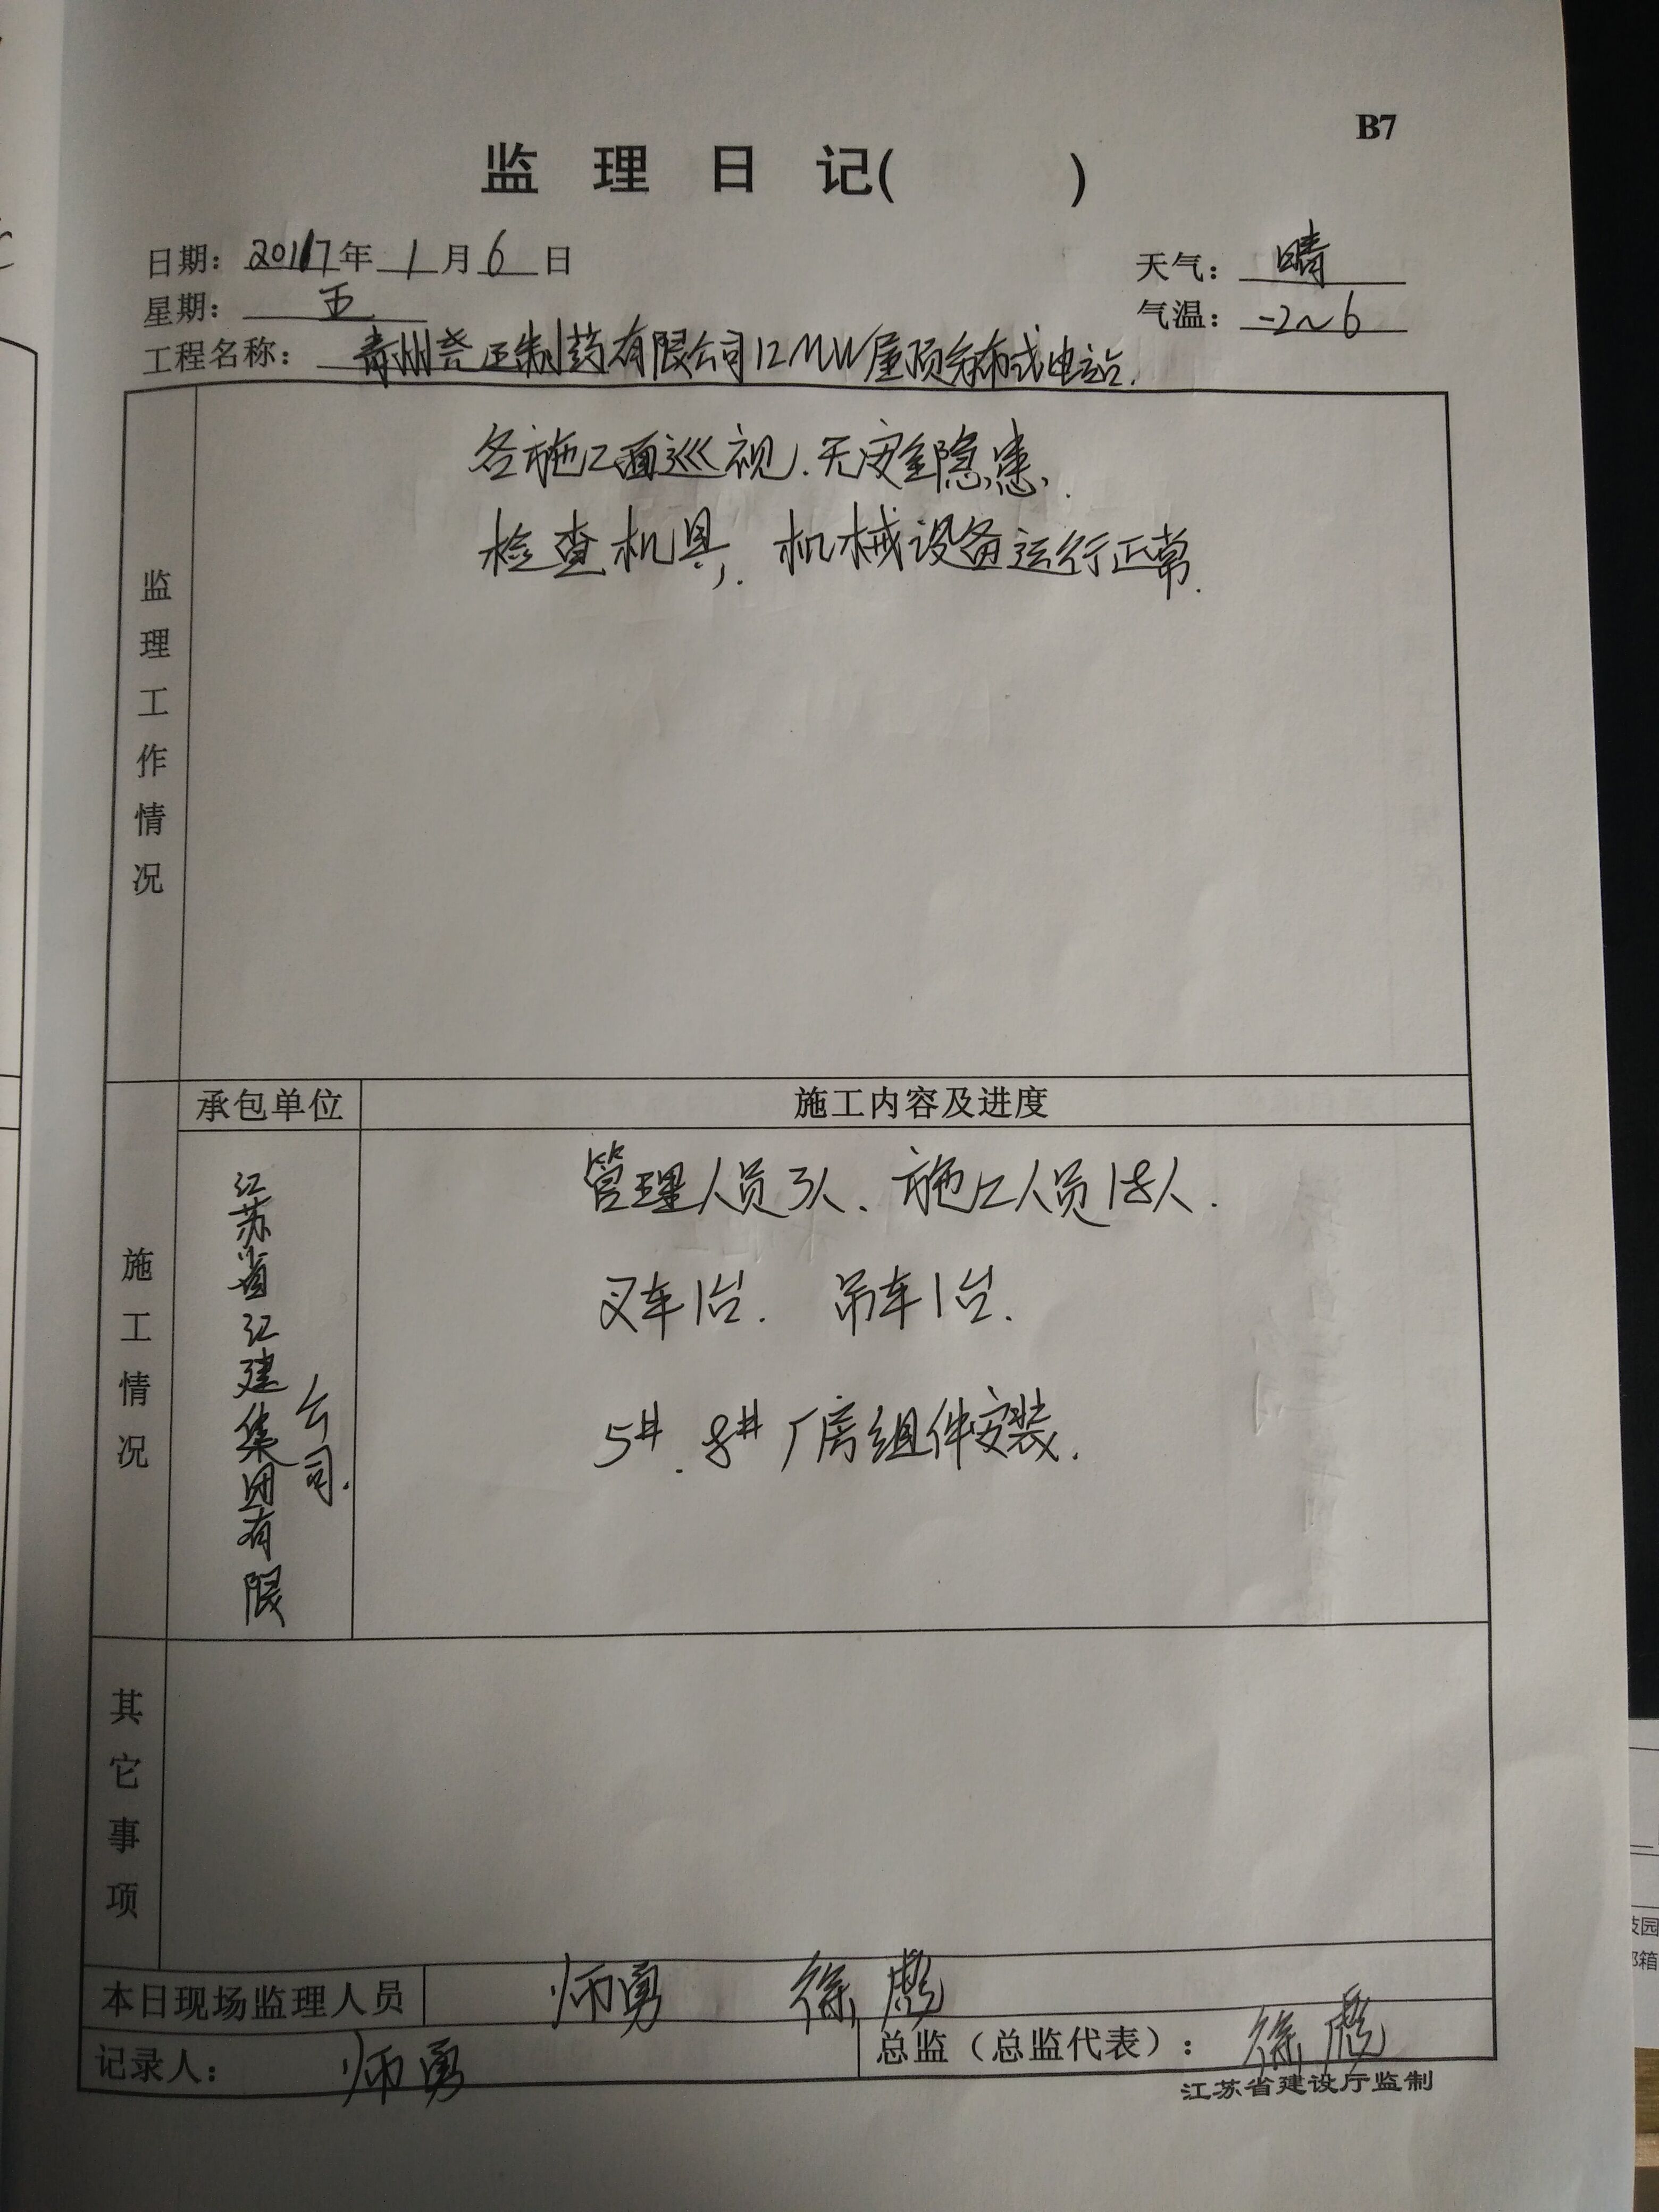 B7
监理日记( )
日期：2017年1月6日
天气：晴
星期：五
气温：-2~6
工程名称：青州尧王制药有限公司12MW屋顶分布式电站.
监理工作情况
各施工面巡视.无安全隐患.
检查机具,.机械设备运行正常.
施工情况
承包单位
施工内容及进度
江苏省江建集团有限公司.
管理人员3人、施工人员18人.
叉车1台. 吊车1台.
5#.8#厂房组件安装.
其它事项
本日现场监理人员 师勇 徐彪
记录人： 师勇
总监（总监代表）： 徐彪
江苏省建设厅监制